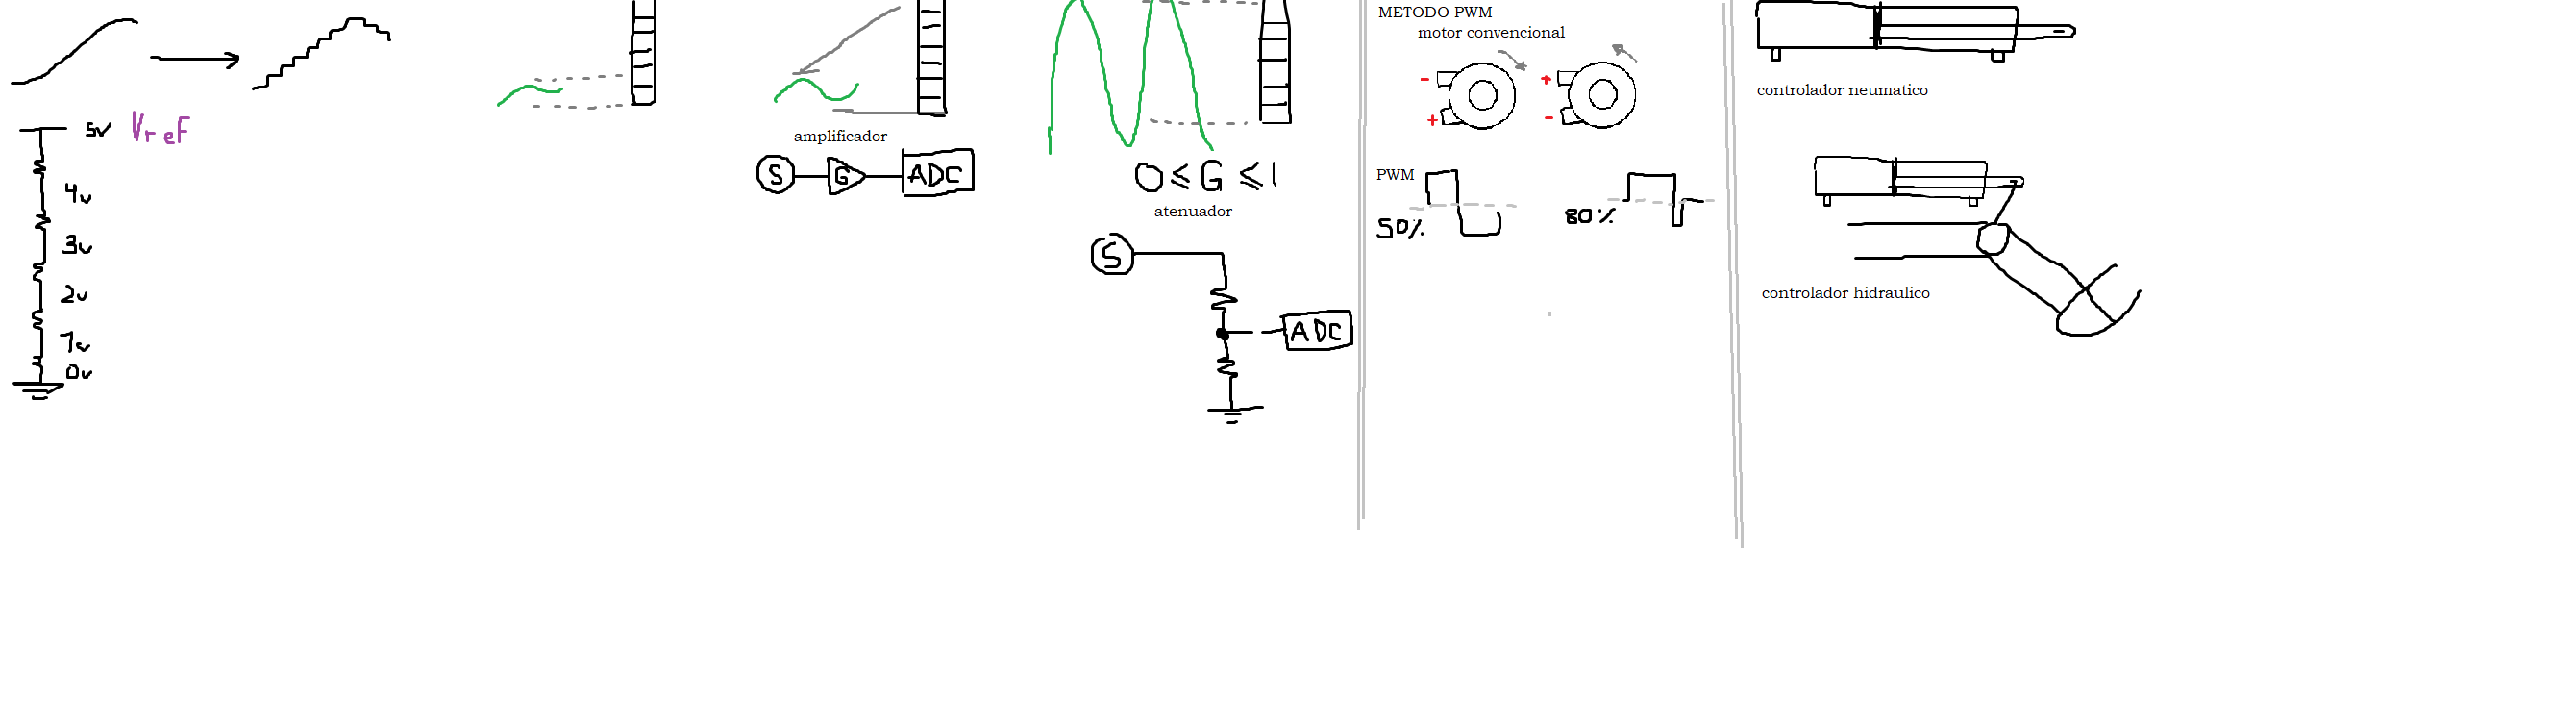 5v VreF
4v
3v
2v
1v
0v
amplificador
S G ADC
0 ≤ G ≤ 1
atenuador
S
ADC
METODO PWM
motor convencional
- +
+ -
PWM
50%
80%
controlador neumatico
controlador hidraulico